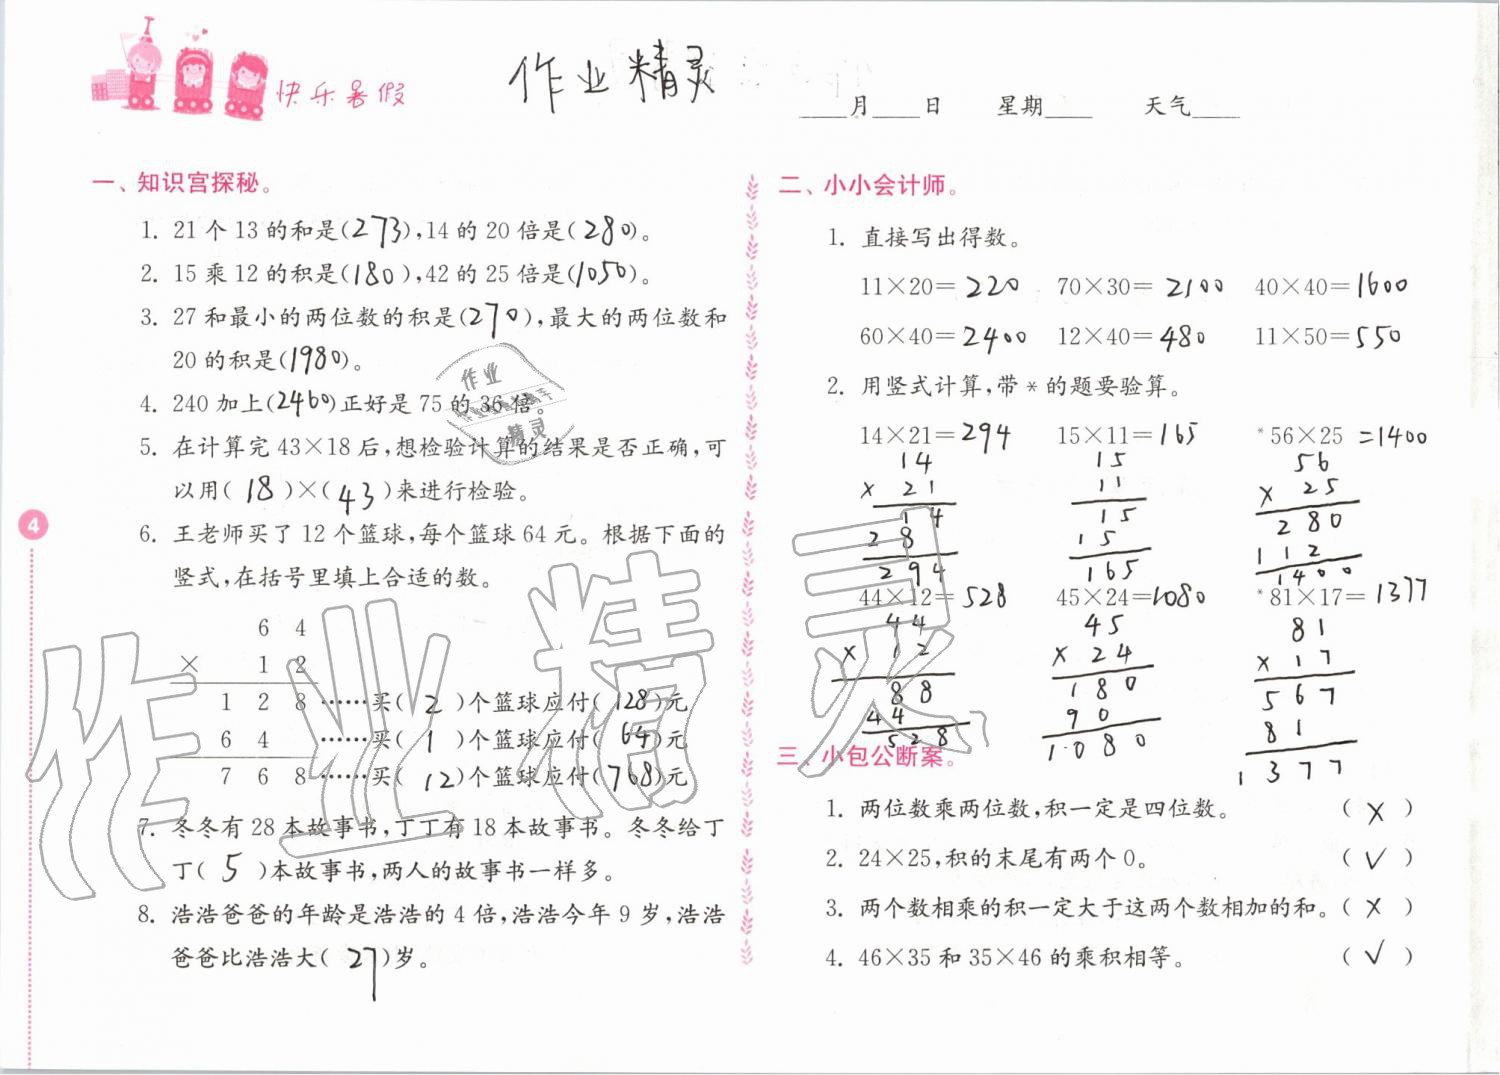 快乐暑假
作业精灵
____月____日 星期____ 天气____
一、知识宫探秘。
1. 21个13的和是(273),14的20倍是(280)。
2. 15乘12的积是(180),42的25倍是(1050)。
3. 27和最小的两位数的积是(270),最大的两位数和
20的积是(1980)。
4. 240加上(2460)正好是75的36倍。
5. 在计算完43×18后,想检验计算的结果是否正确,可
以用(18)×(43)来进行检验。
6. 王老师买了12个篮球,每个篮球64元。根据下面的
竖式,在括号里填上合适的数。
6 4
× 1 2
1 2 8 ……买(2)个篮球应付(128)元
6 4 ……买(1)个篮球应付(64)元
7 6 8 ……买(12)个篮球应付(768)元
7. 冬冬有28本故事书,丁丁有18本故事书。冬冬给丁
丁(5)本故事书,两人的故事书一样多。
8. 浩浩爸爸的年龄是浩浩的4倍,浩浩今年9岁,浩浩
爸爸比浩浩大(27)岁。
4
二、小小会计师。
1. 直接写出得数。
11×20=220 70×30=2100 40×40=1600
60×40=2400 12×40=480 11×50=550
2. 用竖式计算,带*的题要验算。
14×21=294 15×11=165 *56×25=1400
14 15 56
× 21 11 × 25
14 15 280
28 15 112
294 165 1400
44×12=528 45×24=1080 *81×17=1377
44 45 81
× 12 × 24 × 17
88 180 567
44 90 81
528 1080 1377
三、小包公断案。
1. 两位数乘两位数,积一定是四位数。 (×)
2. 24×25,积的末尾有两个0。 (√)
3. 两个数相乘的积一定大于这两个数相加的和。(×)
4. 46×35和35×46的乘积相等。 (√)
作业
精灵
作业精灵